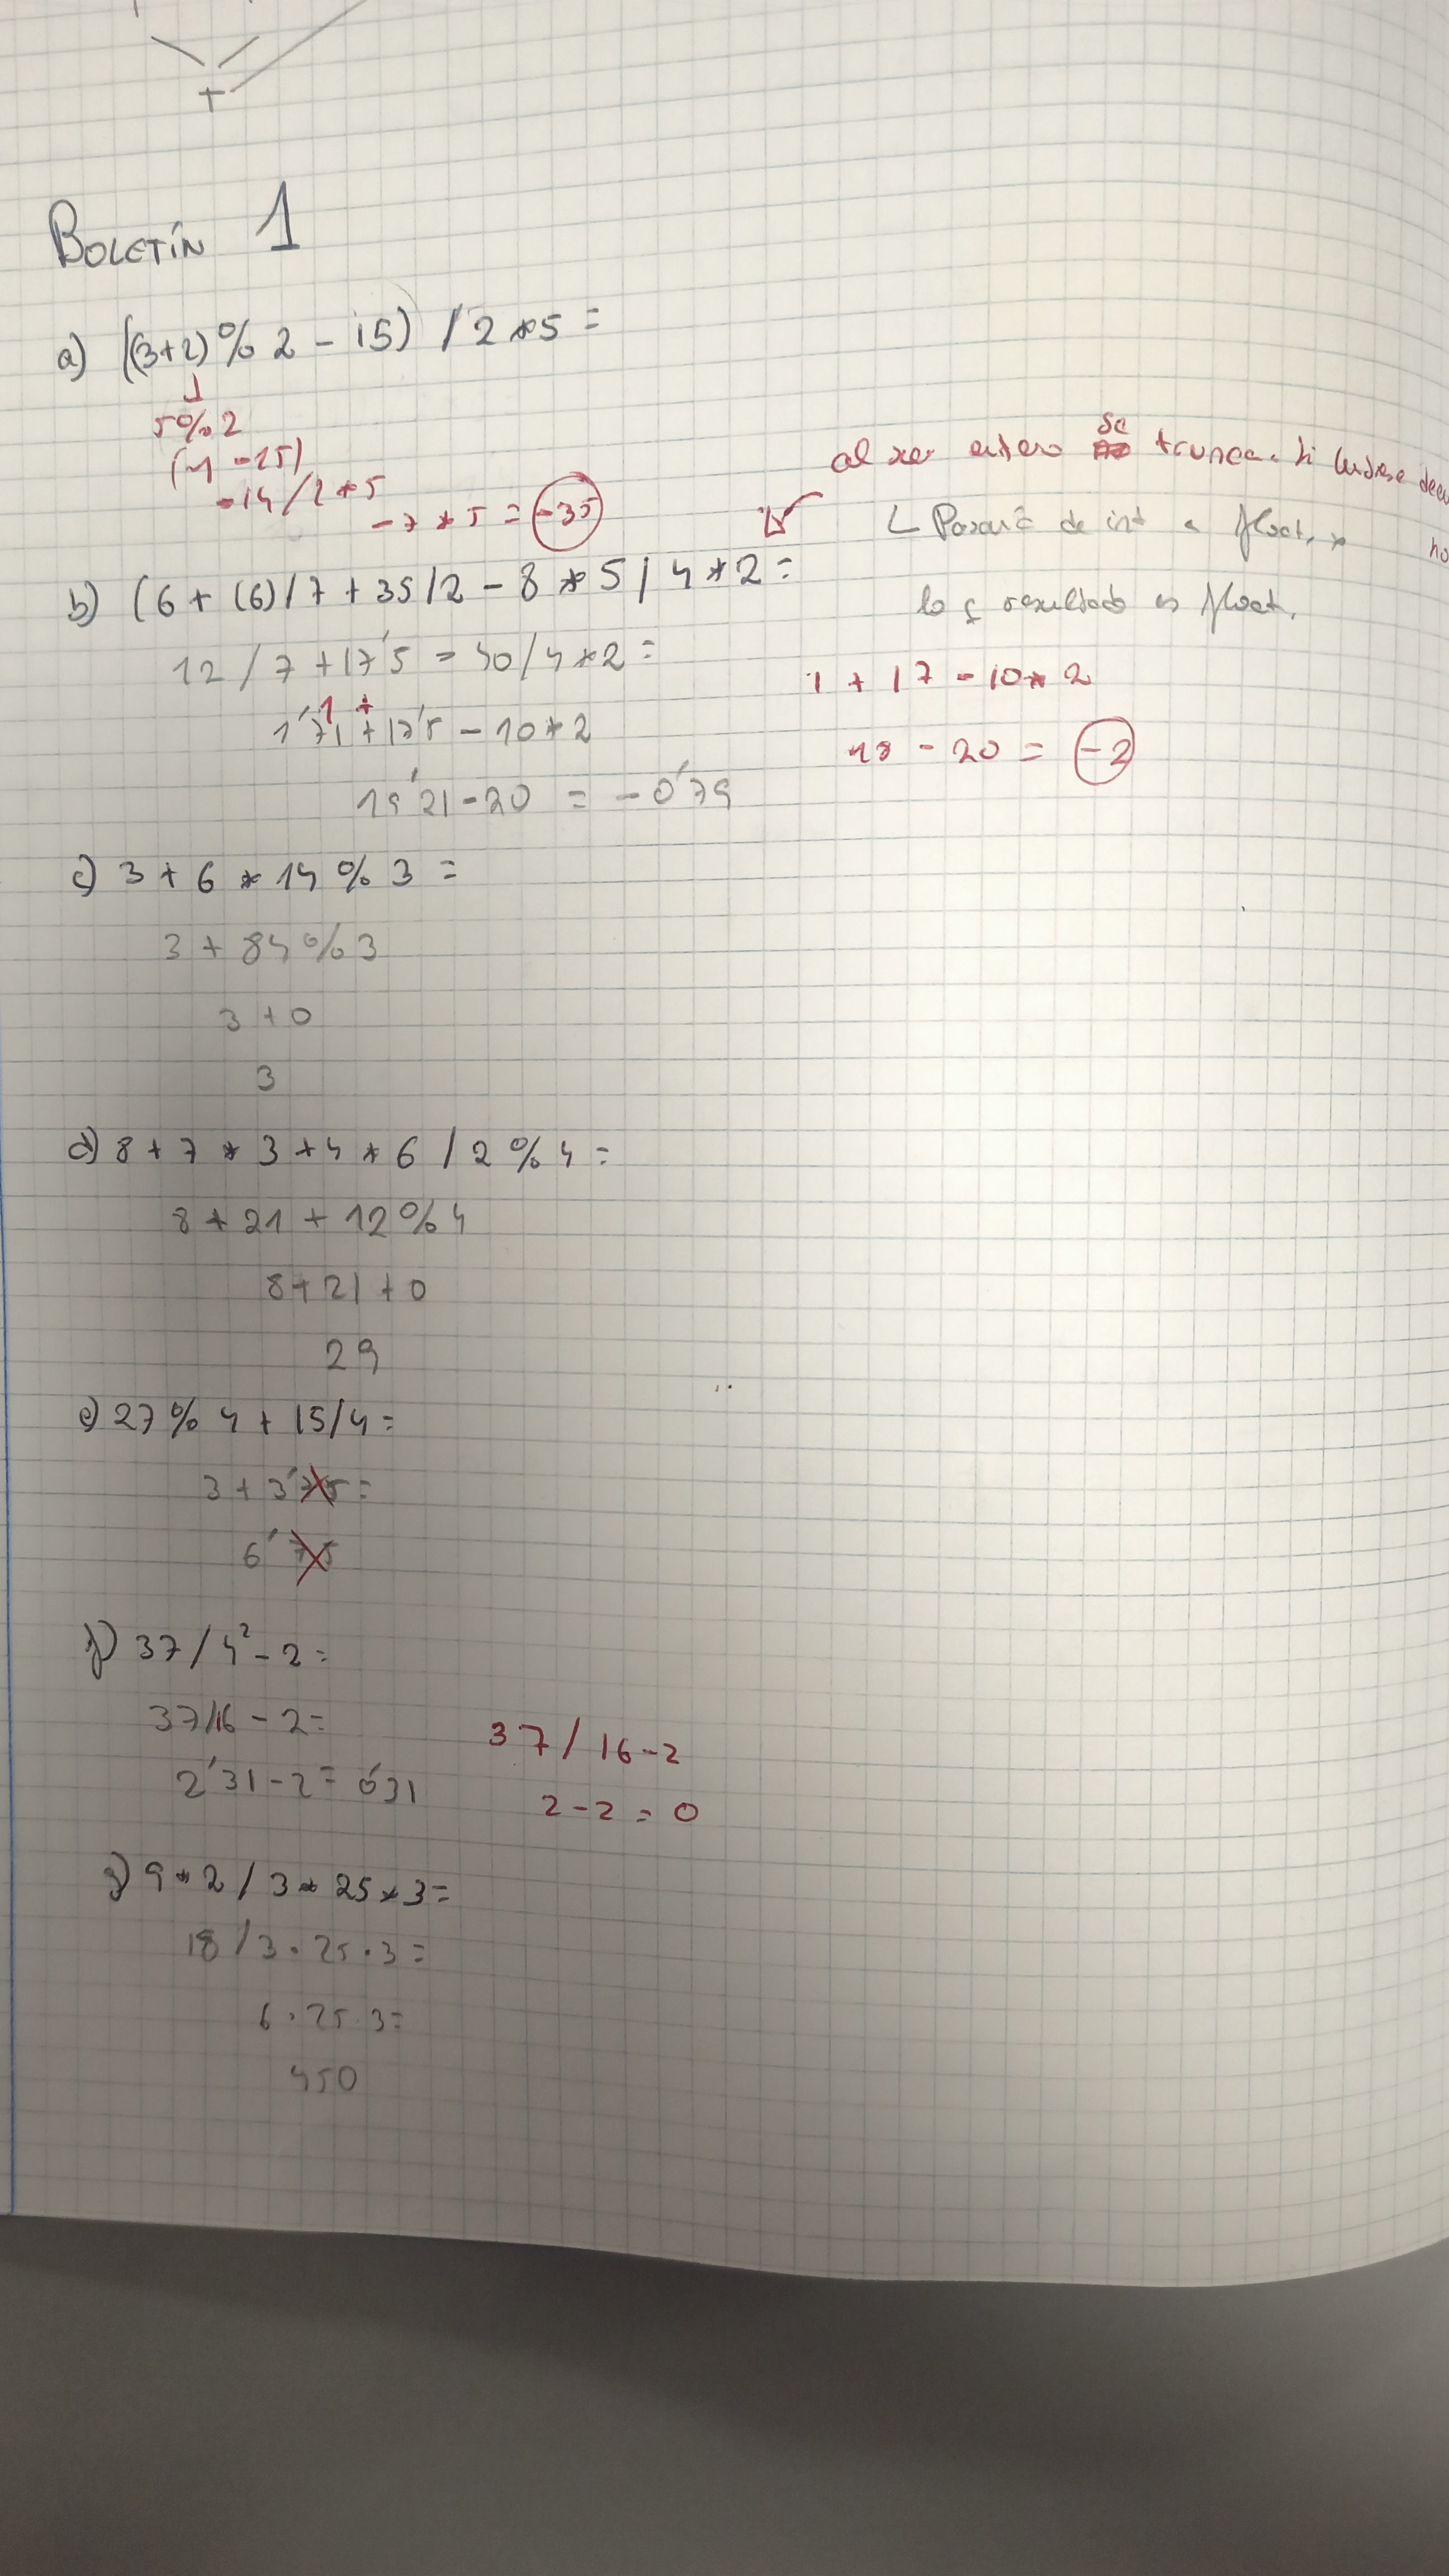 T
BOLETÍN 1
a) ((3+2) % 2 - 15) / 2 * 5 =
5%2
(1 - 15)
-14/2*5
-7 * 5 = -35
al ser entero se trunca. Si
L Pasará de int a float, x
lo q resultado es float.
b) (6 + (6)/7 + 35/2 - 8 * 5 / 4 * 2 =
12 / 7 + 17'5 - 40/4*2 =
1 + 17 - 10 * 2
1 +
1'71 + 17'5 - 10 * 2
18 - 20 = -2
19'21 - 20 = -0'79
c) 3 + 6 * 14 % 3 =
3 + 84 % 3
3 + 0
3
d) 8 + 7 * 3 + 4 * 6 / 2 % 4 =
8 + 21 + 12 % 4
8 + 21 + 0
29
e) 27 % 4 + 15/4 =
3 + 3'75 =
6'75
f) 37 / 4² - 2 =
37/16 - 2 =
37 / 16 - 2
2'31 - 2 = 0'31
2 - 2 = 0
g) 9 * 2 / 3 * 25 * 3 =
18 / 3 · 25 · 3 =
6 · 25 · 3 =
450